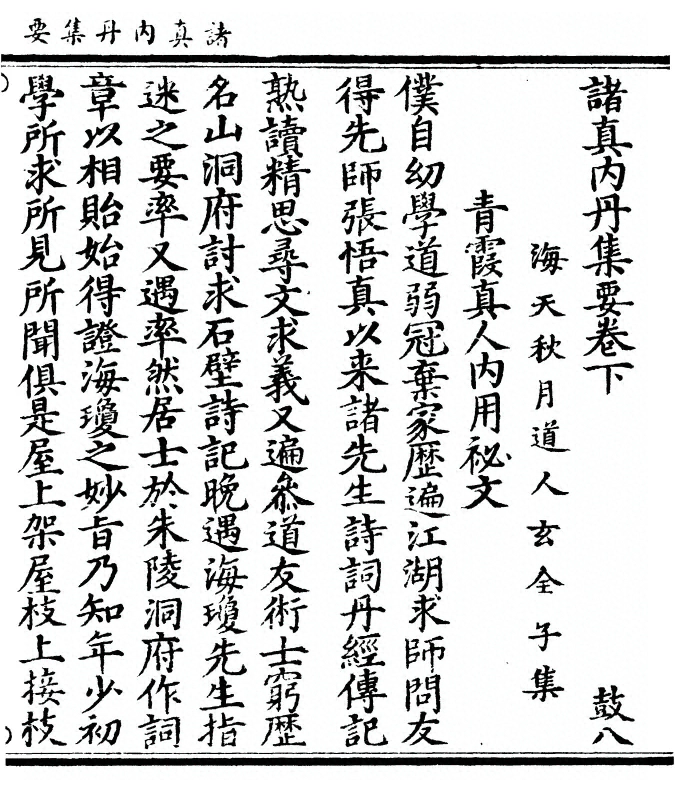 諸真内丹集要
諸真内丹集要卷下
鼓八
海天秋月道人玄全子集
青霞真人内用祕文
僕自幼學道弱冠棄家歷遍江湖求師問友
得先師張悟真以来諸先生詩詞丹經傳記
熟讀精思尋文求義又遍叅道友術士窮歷
名山洞府討求石壁詩記晚遇海瓊先生指
迷之要率又遇率然居士於朱陵洞府作詞
章以相貽始得證海瓊之妙旨乃知年少初
學所求所見所聞俱是屋上架屋枝上接枝